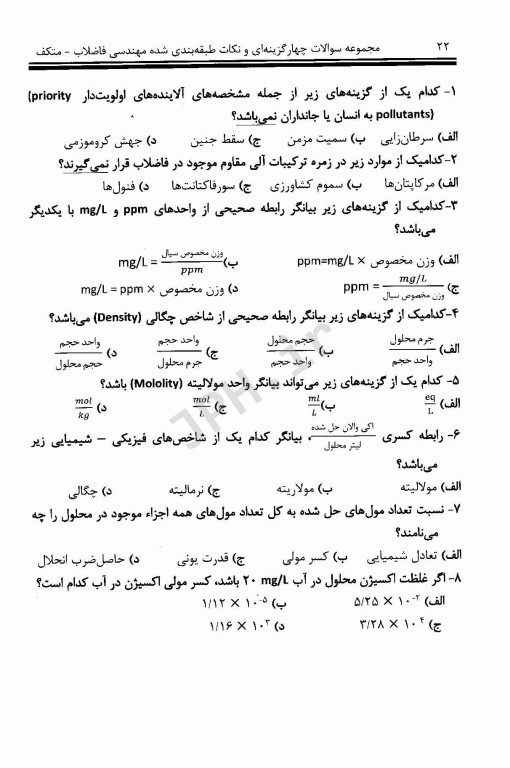 ۲۲ مجموعه سوالات چهارگزینه‌ای و نکات طبقه‌بندی شده مهندسی فاضلاب - متکف
۱- کدام یک از گزینه‌های زیر از جمله مشخصه‌های آلاینده‌های اولویت‌دار (priority
pollutants) به انسان یا جانداران نمی‌باشد؟
الف) سرطان‌زایی ب) سمیت مزمن ج) سقط جنین د) جهش کروموزمی
۲-کدامیک از موارد زیر در زمره ترکیبات آلی مقاوم موجود در فاضلاب قرار نمی‌گیرند؟
الف) مرکاپتان‌ها ب) سموم کشاورزی ج) سورفاکتانت‌ها د) فنول‌ها
۳-کدامیک از گزینه‌های زیر بیانگر رابطه صحیحی از واحدهای ppm و mg/L با یکدیگر
می‌باشد؟
الف) وزن مخصوص × ppm=mg/L ب) mg/L = وزن مخصوص سیال / ppm
ج) ppm = mg/L / وزن مخصوص سیال د) وزن مخصوص × mg/L = ppm
۴-کدامیک از گزینه‌های زیر بیانگر رابطه صحیحی از شاخص چگالی (Density) می‌باشد؟
الف) جرم محلول / واحد حجم ب) حجم محلول / واحد حجم ج) واحد حجم / جرم محلول د) واحد حجم / حجم محلول
۵- کدام یک از گزینه‌های زیر می‌تواند بیانگر واحد مولالیته (Mololity) باشد؟
الف) eq/L ب) ml/L ج) mol/L د) mol/kg
۶- رابطه کسری اکی والان حل شده / لیتر محلول، بیانگر کدام یک از شاخص‌های فیزیکی – شیمیایی زیر
می‌باشد؟
الف) مولالیته ب) مولاریته ج) نرمالیته د) چگالی
۷- نسبت تعداد مول‌های حل شده به کل تعداد مول‌های همه اجزاء موجود در محلول را چه
می‌نامند؟
الف) تعادل شیمیایی ب) کسر مولی ج) قدرت یونی د) حاصل‌ضرب انحلال
۸- اگر غلظت اکسیژن محلول در آب ۲۰ mg/L باشد، کسر مولی اکسیژن در آب کدام است؟
الف) ۵/۲۵ × ۱۰⁻² ب) ۱/۱۲ × ۱۰⁻⁵
ج) ۳/۲۸ × ۱۰⁴ د) ۱/۱۶ × ۱۰³